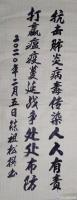 抗击肺炎病毒传染人人有责
打赢瘟疫蔓延战争处处布防
二〇二〇年二月五日